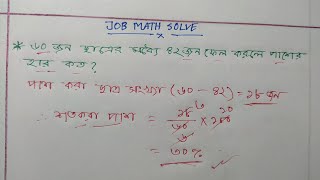 JOB MATH SOLVE
* ৬০ জন ছাত্রের মধ্যে ৪২ জন ফেল করলে পাশের
হার কত?
পাশ করা ছাত্র সংখ্যা (৬০ - ৪২) = ১৮ জন
∴ শতকরা পাশ = ১৮/৬০ × ১০০
= ৩০%